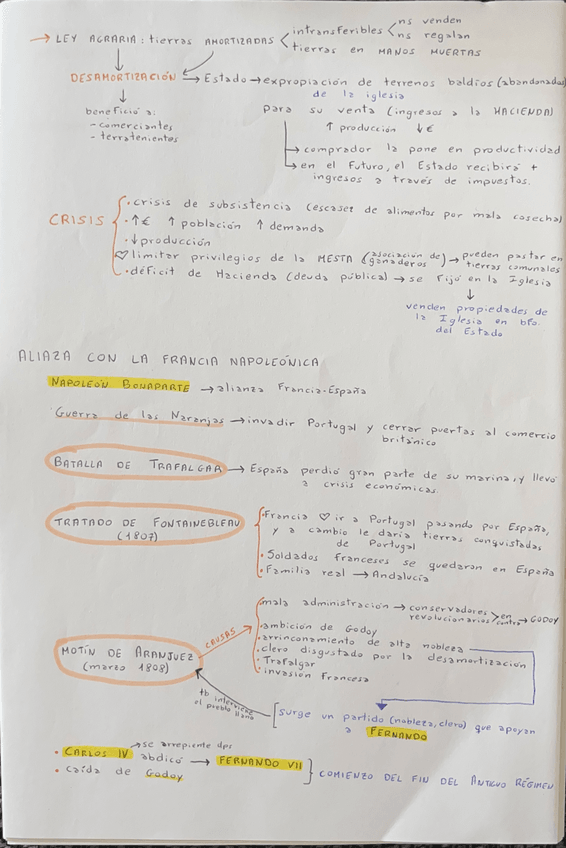 → LEY AGRARIA: tierras AMORTIZADAS < intransferibles < ns venden
ns regalan
tierras en MANOS MUERTAS
DESAMORTIZACIÓN → Estado → expropiación de terrenos baldíos (abandonados)
de la iglesia
benefició a:
- comerciantes
- terratenientes
para su venta (ingresos a la HACIENDA)
↑ producción ↓€
→ comprador la pone en productividad
→ en el futuro, el Estado recibirá +
ingresos a través de impuestos.
CRISIS
· crisis de subsistencia (escasez de alimentos por mala cosecha)
· ↑€ ↑ población ↑ demanda
· ↓ producción
♡ limitar privilegios de la MESTA (asociación de ganaderos) → pueden pastar en
tierras comunales
· déficit de Hacienda (deuda pública) → se fijó en la Iglesia
venden propiedades de
la Iglesia en bfo.
del Estado
ALIAZA CON LA FRANCIA NAPOLEÓNICA
NAPOLEÓN BONAPARTE → alianza Francia-España
Guerra de las Naranjas → invadir Portugal y cerrar puertas al comercio
británico
BATALLA DE TRAFALGAR → España perdió gran parte de su marina, y llevó
a crisis económicas.
TRATADO DE FONTAINEBLEAU
(1807)
· Francia ♡ ir a Portugal pasando por España,
y a cambio le daría tierras conquistadas
de Portugal
· Soldados franceses se quedaron en España
· Familia real → Andalucía
MOTÍN DE ARANJUEZ
(marzo 1808)
CAUSAS
· mala administración → conservadores
revolucionarios > en contra → GODOY
· ambición de Godoy
· arrinconamiento de alta nobleza
· clero disgustado por la desamortización
· Trafalgar
· invasión francesa
tb interviene
el pueblo llano
surge un partido (nobleza, clero) que apoyan
a FERNANDO
→ se arrepiente dps
· CARLOS IV abdicó → FERNANDO VII
· caída de Godoy
} COMIENZO DEL FIN DEL ANTIGUO RÉGIMEN